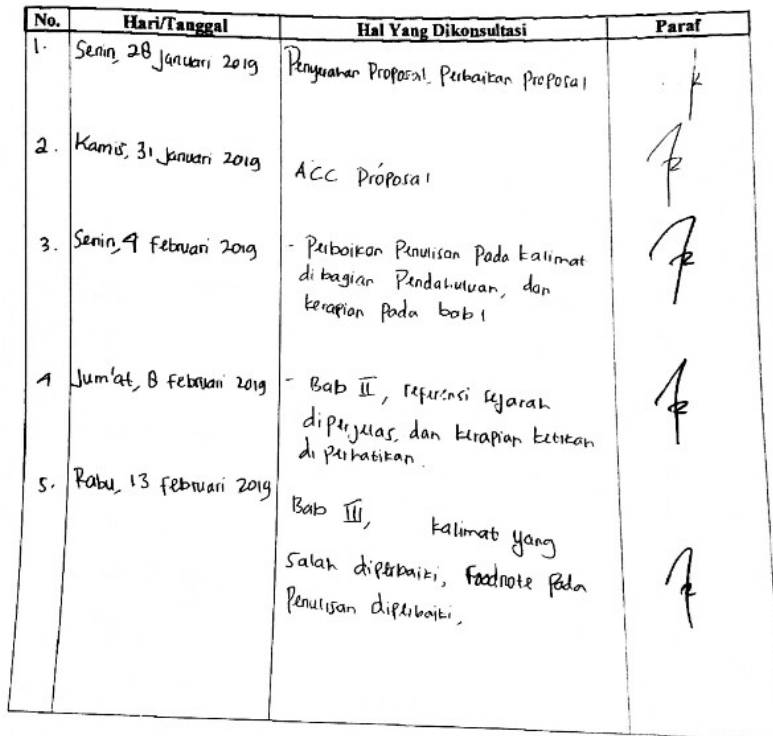 No. Hari/Tanggal Hal Yang Dikonsultasi Paraf
1. Senin, 28 Januari 2019 Penyerahan Proposal, Perbaikan Proposal
2. Kamis, 31 Januari 2019 ACC Proposal
3. Senin, 4 Februari 2019 - Perbaikan Penulisan Pada kalimat
di bagian Pendahuluan, dan
kerapian Pada bab 1
4 Jum'at, 8 februari 2019 - Bab II, referensi sejarah
diperjelas, dan kerapian ketikan
di perhatikan.
5. Rabu, 13 februari 2019
Bab III, kalimat yang
Salah diperbaiki, Foodnote Pada
Penulisan diperbaiki,